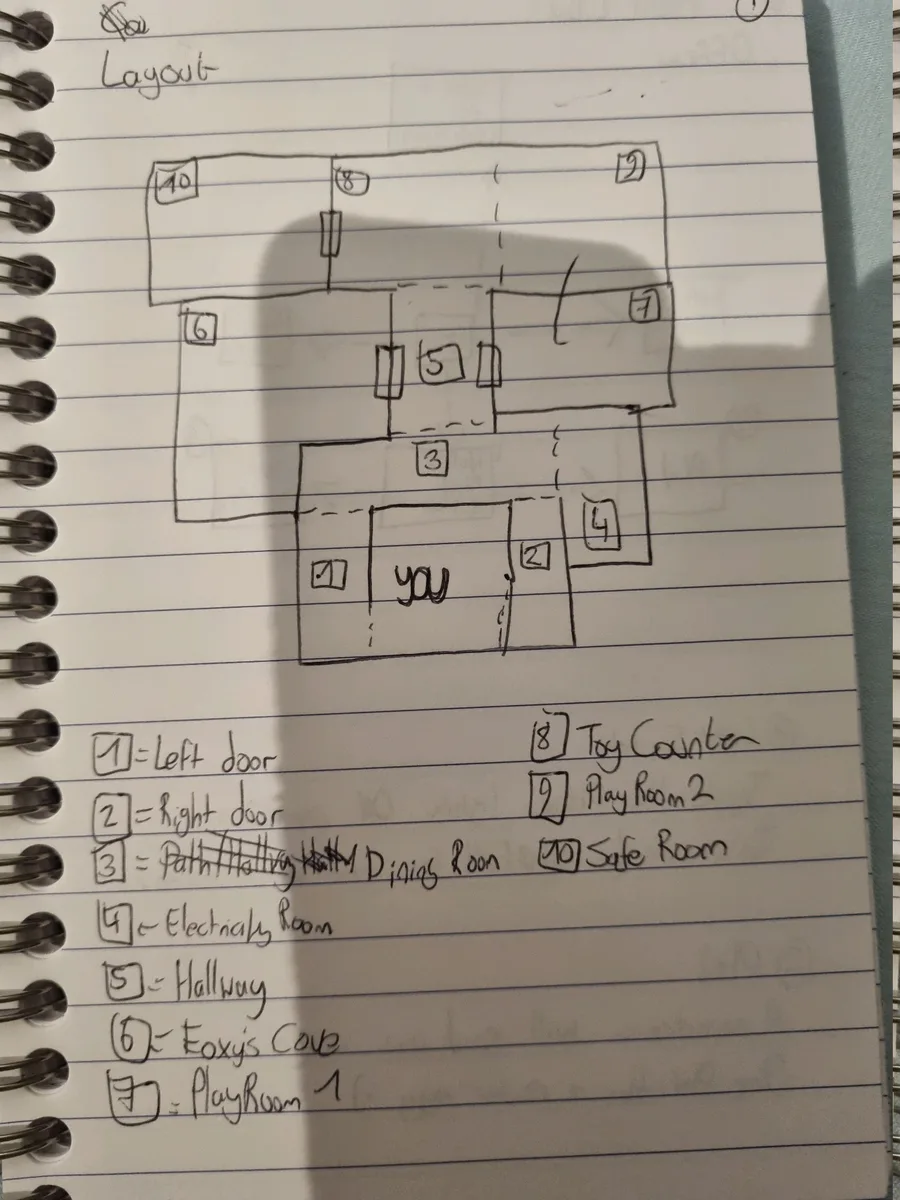 Layout
10 8 9
6 5 7
3
4
1 you 2
1 = Left door
2 = Right door
3 = Dining Room
4 = Electricity Room
5 = Hallway
6 = Foxy's Cove
7 = PlayRoom 1
8 Toy Counter
9 PlayRoom 2
10 Safe Room